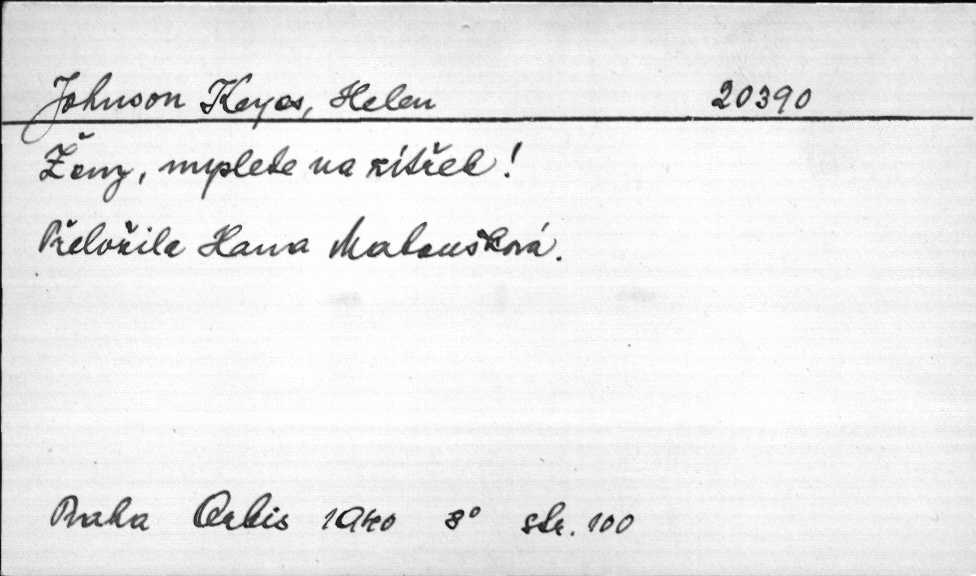 Johnson Keyes, Helen 20390
Ženy, myslete na zítřek!
Přeložila Hana Matoušková.
Praha Orbis 1940 8° str. 100